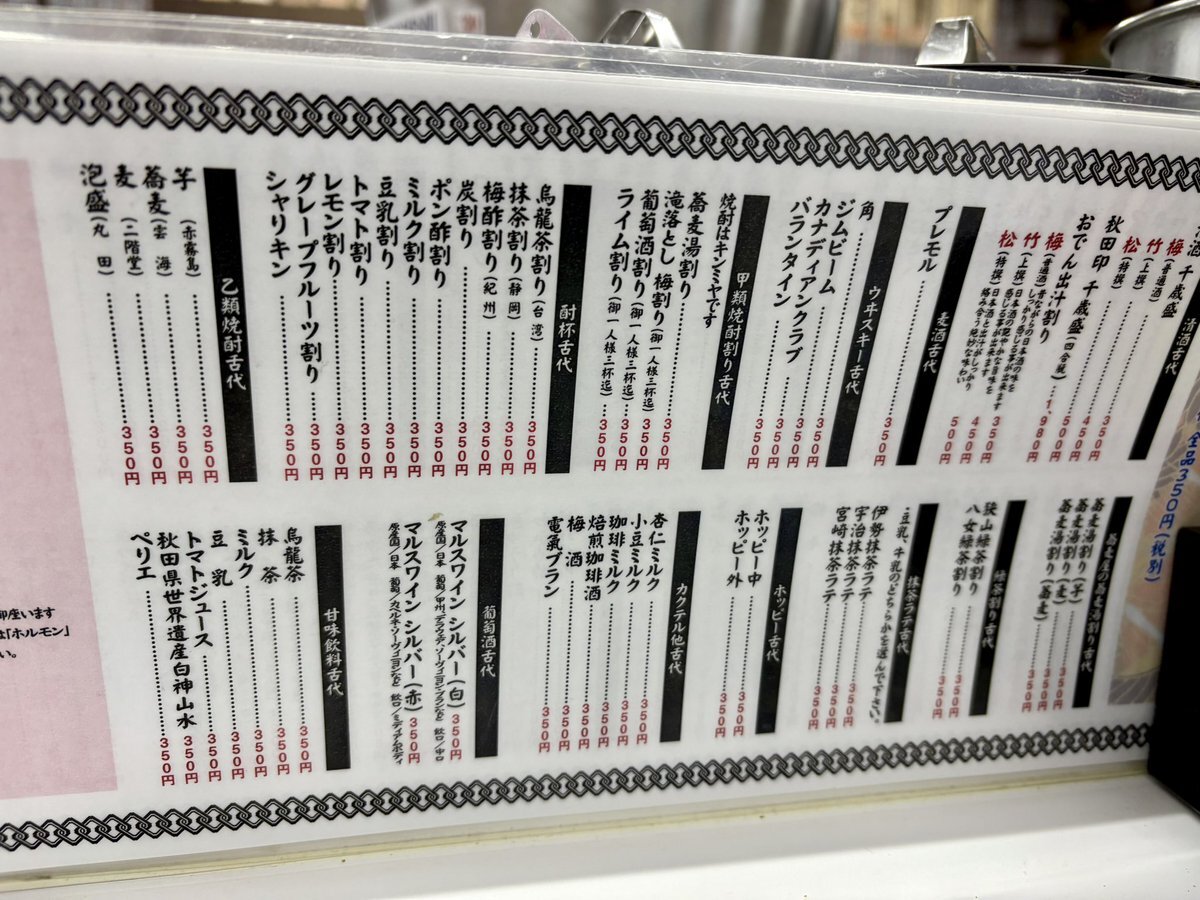 清酒古代
清酒 千歳盛
梅(普通酒)
竹(上撰)
松(特撰)……350円
秋田印 千歳盛(四合瓶)……1,980円
おでん出汁割り
梅(普通酒)昔ながらの日本酒の味を
しっかり感じる事が出来ます
竹(上撰)日本酒の穏やかな旨味を
感じる事が出来ます
松(特撰)日本酒と出汁がしっかり
絡み合う絶妙な味わい
350円
450円
500円
麦酒古代
プレモル……500円
ウヰスキー古代
角……350円
ジムビーム……350円
カナディアンクラブ……350円
バランタイン……350円
甲類焼酎割り古代
焼酎はキンミヤです
蕎麦湯割り……350円
滝落とし 梅割り(御一人様三杯迄)……350円
葡萄酒割り(御一人様三杯迄)……350円
ライム割り(御一人様三杯迄)……350円
酎杯古代
烏龍茶割り(台湾)……350円
抹茶割り(静岡)……350円
梅酢割り(紀州)……350円
炭割り……350円
ポン酢割り……350円
ミルク割り……350円
豆乳割り……350円
トマト割り……350円
レモン割り……350円
グレープフルーツ割り……350円
シャリキン……350円
乙類焼酎古代
芋(赤霧島)……350円
蕎麦(雲海)……350円
麦(二階堂)……350円
泡盛(丸田)……350円
全品350円(税別)
蕎麦屋の蕎麦湯割り古代
蕎麦湯割り(芋)……350円
蕎麦湯割り(麦)……350円
蕎麦湯割り(蕎麦)……350円
緑茶割り古代
狭山緑茶割り……350円
八女緑茶割り……350円
抹茶ラテ古代
豆乳、牛乳のどちらかを選んで下さい。
伊勢抹茶ラテ……350円
宇治抹茶ラテ……350円
宮崎抹茶ラテ……350円
ホッピー古代
ホッピー中……350円
ホッピー外……350円
カクテル他古代
杏仁ミルク……350円
小豆ミルク……350円
珈琲ミルク……350円
焙煎珈琲酒……350円
梅酒……350円
電氣ブラン……350円
葡萄酒古代
マルスワイン シルバー(白)350円
原産国/日本 葡萄/甲州、デラウェア、ソーヴィニヨン・ブランなど 飲口/中口
マルスワイン シルバー(赤)350円
原産国/日本 葡萄/カベルネ・ソーヴィニヨンなど 飲口/ミディアムボディ
甘味飲料古代
烏龍茶……350円
抹茶……350円
ミルク……350円
豆乳……350円
トマトジュース……350円
秋田県世界遺産白神山水 350円
ペリエ……350円
御座います
は「ホルモン」
い。